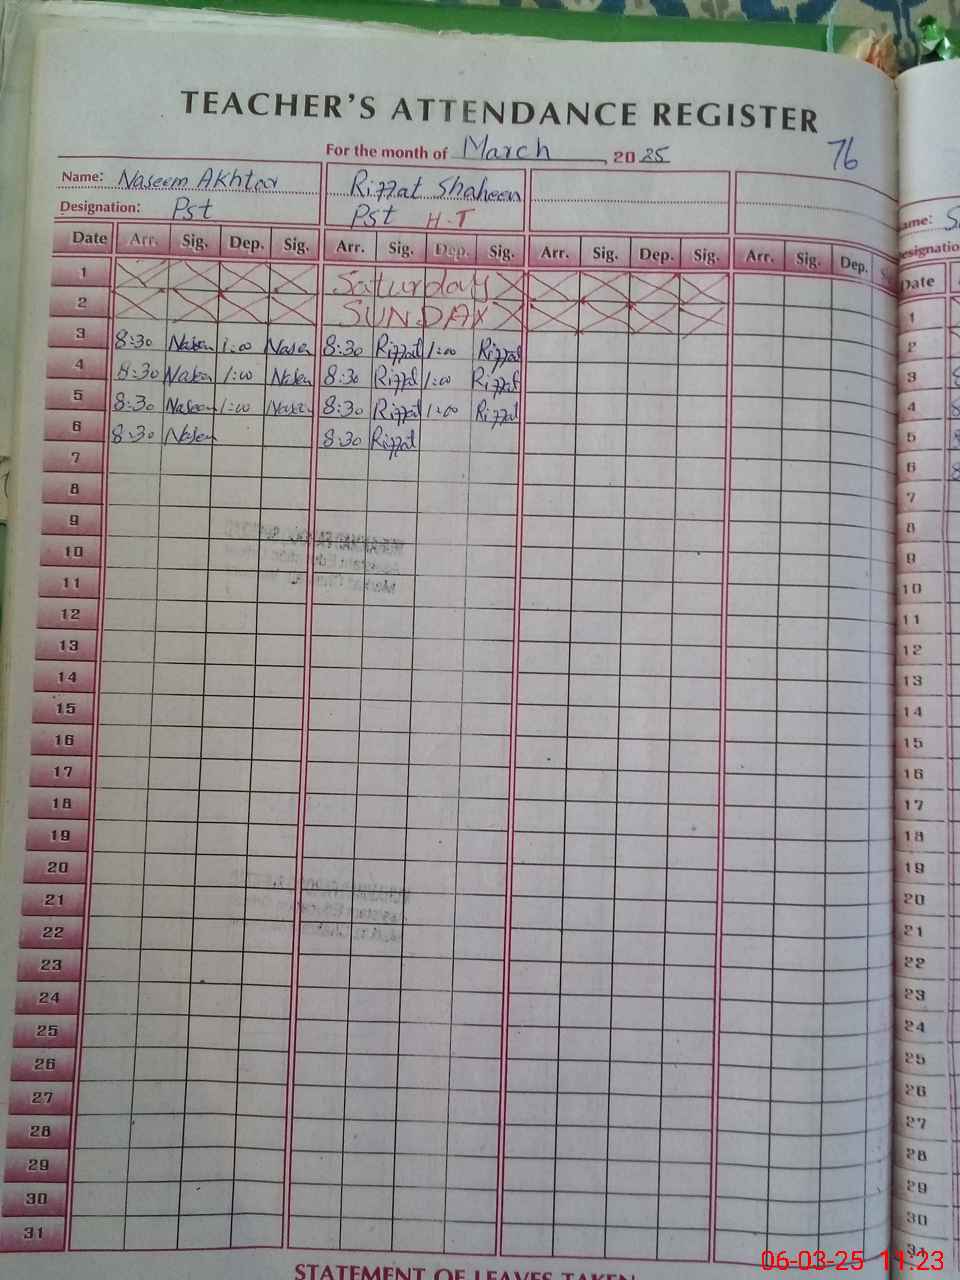 TEACHER'S ATTENDANCE REGISTER
For the month of March, 2025
76
Name: Naseem Akhtar Rizzat Shaheen
Designation: Pst Pst H.T
Date Arr. Sig. Dep. Sig. Arr. Sig. Dep. Sig. Arr. Sig. Dep. Sig. Arr. Sig. Dep.
1 Saturday
2 SUNDAY
3 8:30 Naseem 1:00 Naseem 8:30 Rizzat 1:00 Rizzat
4 8:30 Naseem 1:00 Naseem 8:30 Rizzat 1:00 Rizzat
5 8:30 Naseem 1:00 Naseem 8:30 Rizzat 1:00 Rizzat
6 8:30 Naseem 8:30 Rizzat
7
8
9
10
11
12
13
14
15
16
17
18
19
20
21
22
23
24
25
26
27
28
29
30
31
STATEMENT OF LEAVES TAKEN
ame: S
esignatio
Date
1
2
3 8
4 8
5 8
6 8
7
8
9
10
11
12
13
14
15
16
17
18
19
20
21
22
23
24
25
26
27
28
29
30
31
06-03-25 11:23